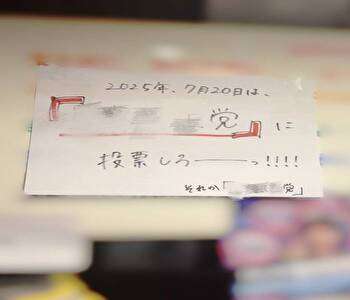 2025年、7月20日は、
『 党』に
投票しろーーっ!!!!
それか「 党」